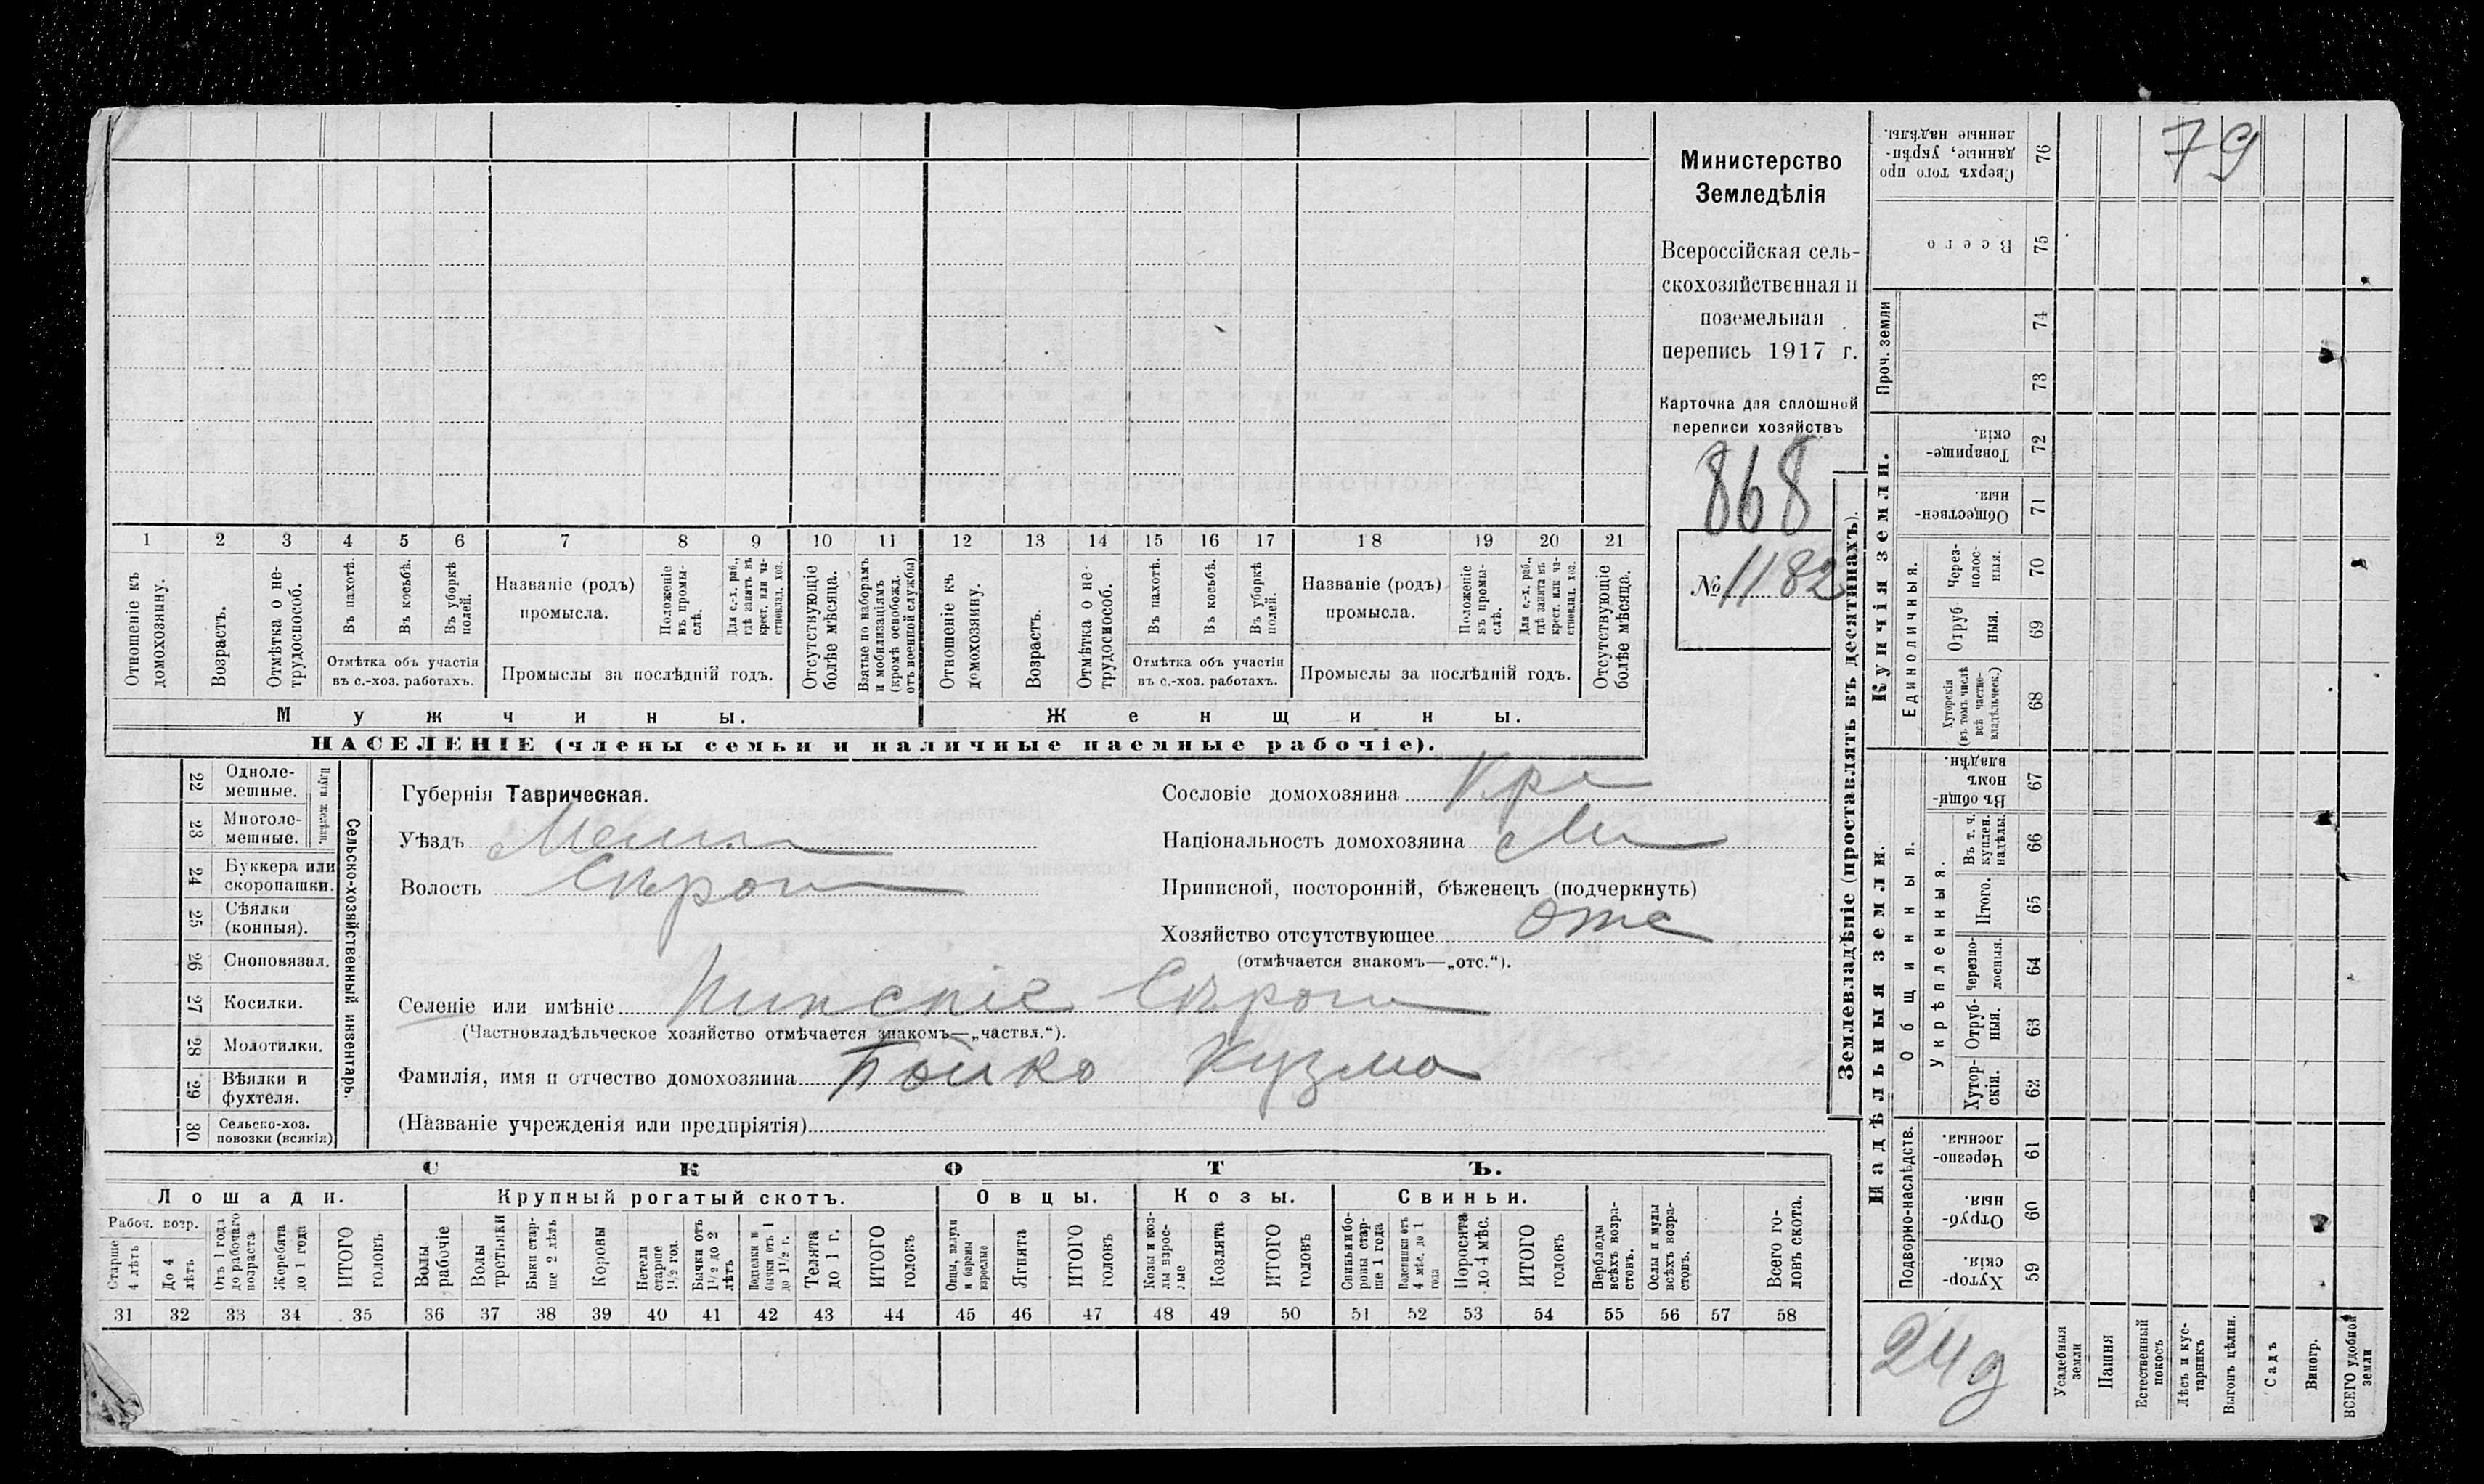 Министерство
Земледѣлія
Всероссійская сель-
скохозяйственная и
поземельная
перепись 1917 г.
Карточка для сплошной
переписи хозяйствъ
868
№ 1182
79
1 2 3 4 5 6 7 8 9 10 11 12 13 14 15 16 17 18 19 20 21
Отношеніе къ домохозяину.
Возрастъ.
Отмѣтка о не-трудоспособ.
Въ пахотѣ.
Въ косьбѣ.
Въ уборкѣ полей.
Отмѣтка объ участіи
въ с.-хоз. работахъ.
Названіе (родъ)
промысла.
Положеніе въ промы-слѣ.
Для с.-х. раб., гдѣ занятъ въ крест. или ча-стновлад. хоз.
Промыслы за послѣдній годъ.
Отсутствующіе болѣе мѣсяца.
Взятые по наборамъ и мобилизаціямъ (кромѣ освобожд. отъ военной службы)
Отношеніе къ домохозяину.
Возрастъ.
Отмѣтка о не-трудоспособ.
Въ пахотѣ.
Въ косьбѣ.
Въ уборкѣ полей.
Отмѣтка объ участіи
въ с.-хоз. работахъ.
Названіе (родъ)
промысла.
Положеніе въ промы-слѣ.
Для с.-х. раб., гдѣ занята въ крест. или ча-стновлад. хоз.
Промыслы за послѣдній годъ.
Отсутствующіе болѣе мѣсяца.
Мужчины.
Женщины.
НАСЕЛЕНІЕ (члены семьи и наличные наемные рабочіе).
22 Однолe-мешные.
23 Многоле-мешные.
24 Буккера или скоропашки.
25 Сѣялки (конныя).
26 Сноповязал.
27 Косилки.
28 Молотилки.
29 Вѣялки и фухтеля.
30 Сельско-хоз. повозки (всякія)
Сельско-хозяйственный инвентарь.
Губернія Таврическая.
Уѣздъ Мели
Волость Сѣрог
Сословіе домохозяина Кре
Національность домохозяина Ми
Приписной, посторонній, бѣженецъ (подчеркнуть)
Хозяйство отсутствующее отс
(отмѣчается знакомъ—„отс.“).
Селеніе или имѣніе Нижніе Сѣрог
(Частновладѣльческое хозяйство отмѣчается знакомъ—„частвл.“).
Фамилія, имя и отчество домохозяина Бойко Кузма
(Названіе учрежденія или предпріятія)
СКОТЪ.
Лошади.
Крупный рогатый скотъ.
Овцы.
Козы.
Свиньи.
Рабоч. возр.
Старше 4 лѣтъ
До 4 лѣтъ
Отъ 1 года до рабочаго возраста
Жеребята до 1 года
ИТОГО головъ
Волы рабочіе
Волы третьяки
Быки стар-ше 2 лѣтъ
Коровы
Нетели старше 1½ год.
Бычки отъ 1½ до 2 лѣтъ
Подтелки и бычки отъ 1 до 1½ г.
Телята до 1 г.
ИТОГО головъ
Овцы, валухи и бараны взрослые
Ягнята
ИТОГО головъ
Козы и коз-лы взрос-лые
Козлята
ИТОГО головъ
Свиньи и бо-ровы стар-ше 1 года
Подсвинки отъ 4 мѣс. до 1 года
Поросята до 4 мѣс.
ИТОГО головъ
Верблюды всѣхъ возра-стовъ.
Ослы и мулы всѣхъ возра-стовъ.
Всего го-ловъ скота.
31 32 33 34 35 36 37 38 39 40 41 42 43 44 45 46 47 48 49 50 51 52 53 54 55 56 57 58
Землевладѣніе (проставлять въ десятинахъ).
Сверхъ того про-данные, укрѣп-ленные надѣлы. 76
Всего 75
Проч. земли
74
73
Купчія земли.
Товарище-скія. 72
Обществен-ныя. 71
Единоличныя.
Через-полос-ныя. 70
Отруб-ныя. 69
Хуторскія (въ томъ числѣ всѣ частно-владѣльческ.) 68
Надѣльныя земли.
Общинныя.
Въ общин-номъ владѣн. 67
Укрѣпленныя.
Въ т. ч. куплен. надѣлы. 66
Итого. 65
Черезпо-лосныя. 64
Отруб-ныя. 63
Хутор-скія. 62
Подворно-наслѣдств.
Черезпо-лосныя. 61
Отруб-ныя. 60
Хутор-скія. 59
24д
Усадебныя земли
Пашня
Естественный покосъ
Лѣсъ и кус-тарникъ
Выгонъ цѣлин.
Садъ
Виногр.
ВСЕГО удобной земли